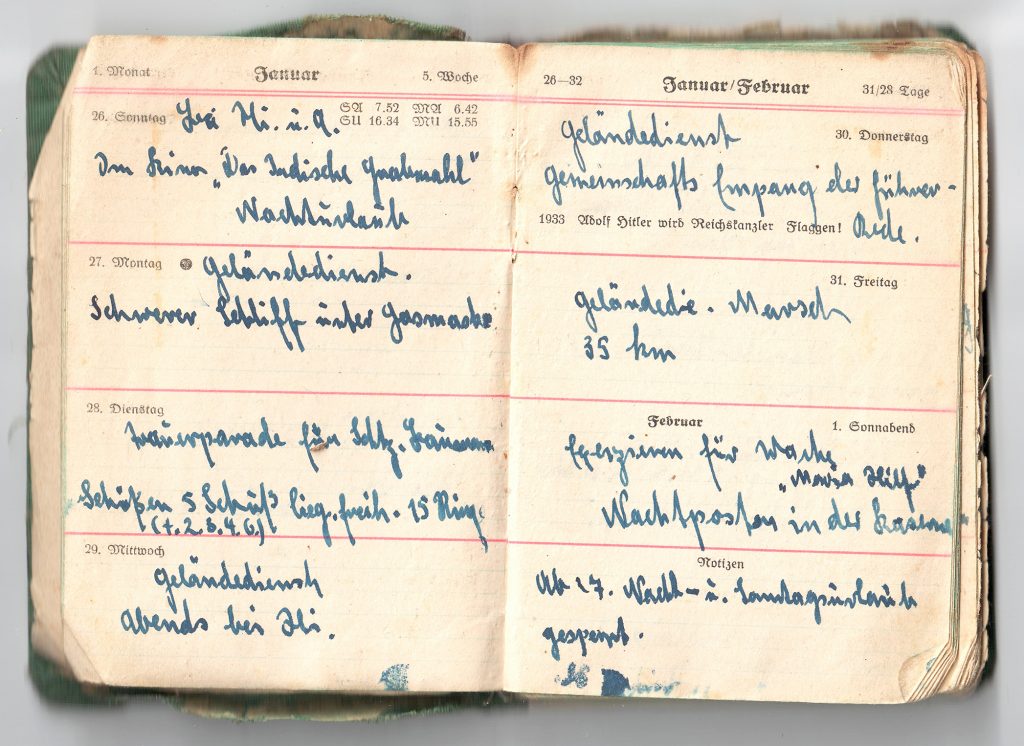 1. Monat Januar 5. Woche
26. Sonntag Bei Hi. u. A. SA 7.52 MA 6.42
SU 16.34 MU 15.55
Im Kino „Das Indische Grabmahl"
Nachturlaub
27. Montag Geländedienst.
Schwerer Schliff unter Gasmaske
28. Dienstag
Trauerparade für Schtz.
Schießen 5 Schuß lieg. freih. 15 Ring
(4.2.3.4.6.)
29. Mittwoch
Geländedienst
Abends bei Hi.
26—32 Januar/Februar 31/28 Tage
Geländedienst 30. Donnerstag
Gemeinschafts Empang der Führer-
1933 Adolf Hitler wird Reichskanzler Flaggen! Rede.
31. Freitag
Geländedie. Marsch
35 km
Februar 1. Sonnabend
Exerzieren für Wache
Nachtposten in der Kaserne
Notizen
Ab 17. Nacht- u. Sonntagsurlaub
gesperrt.